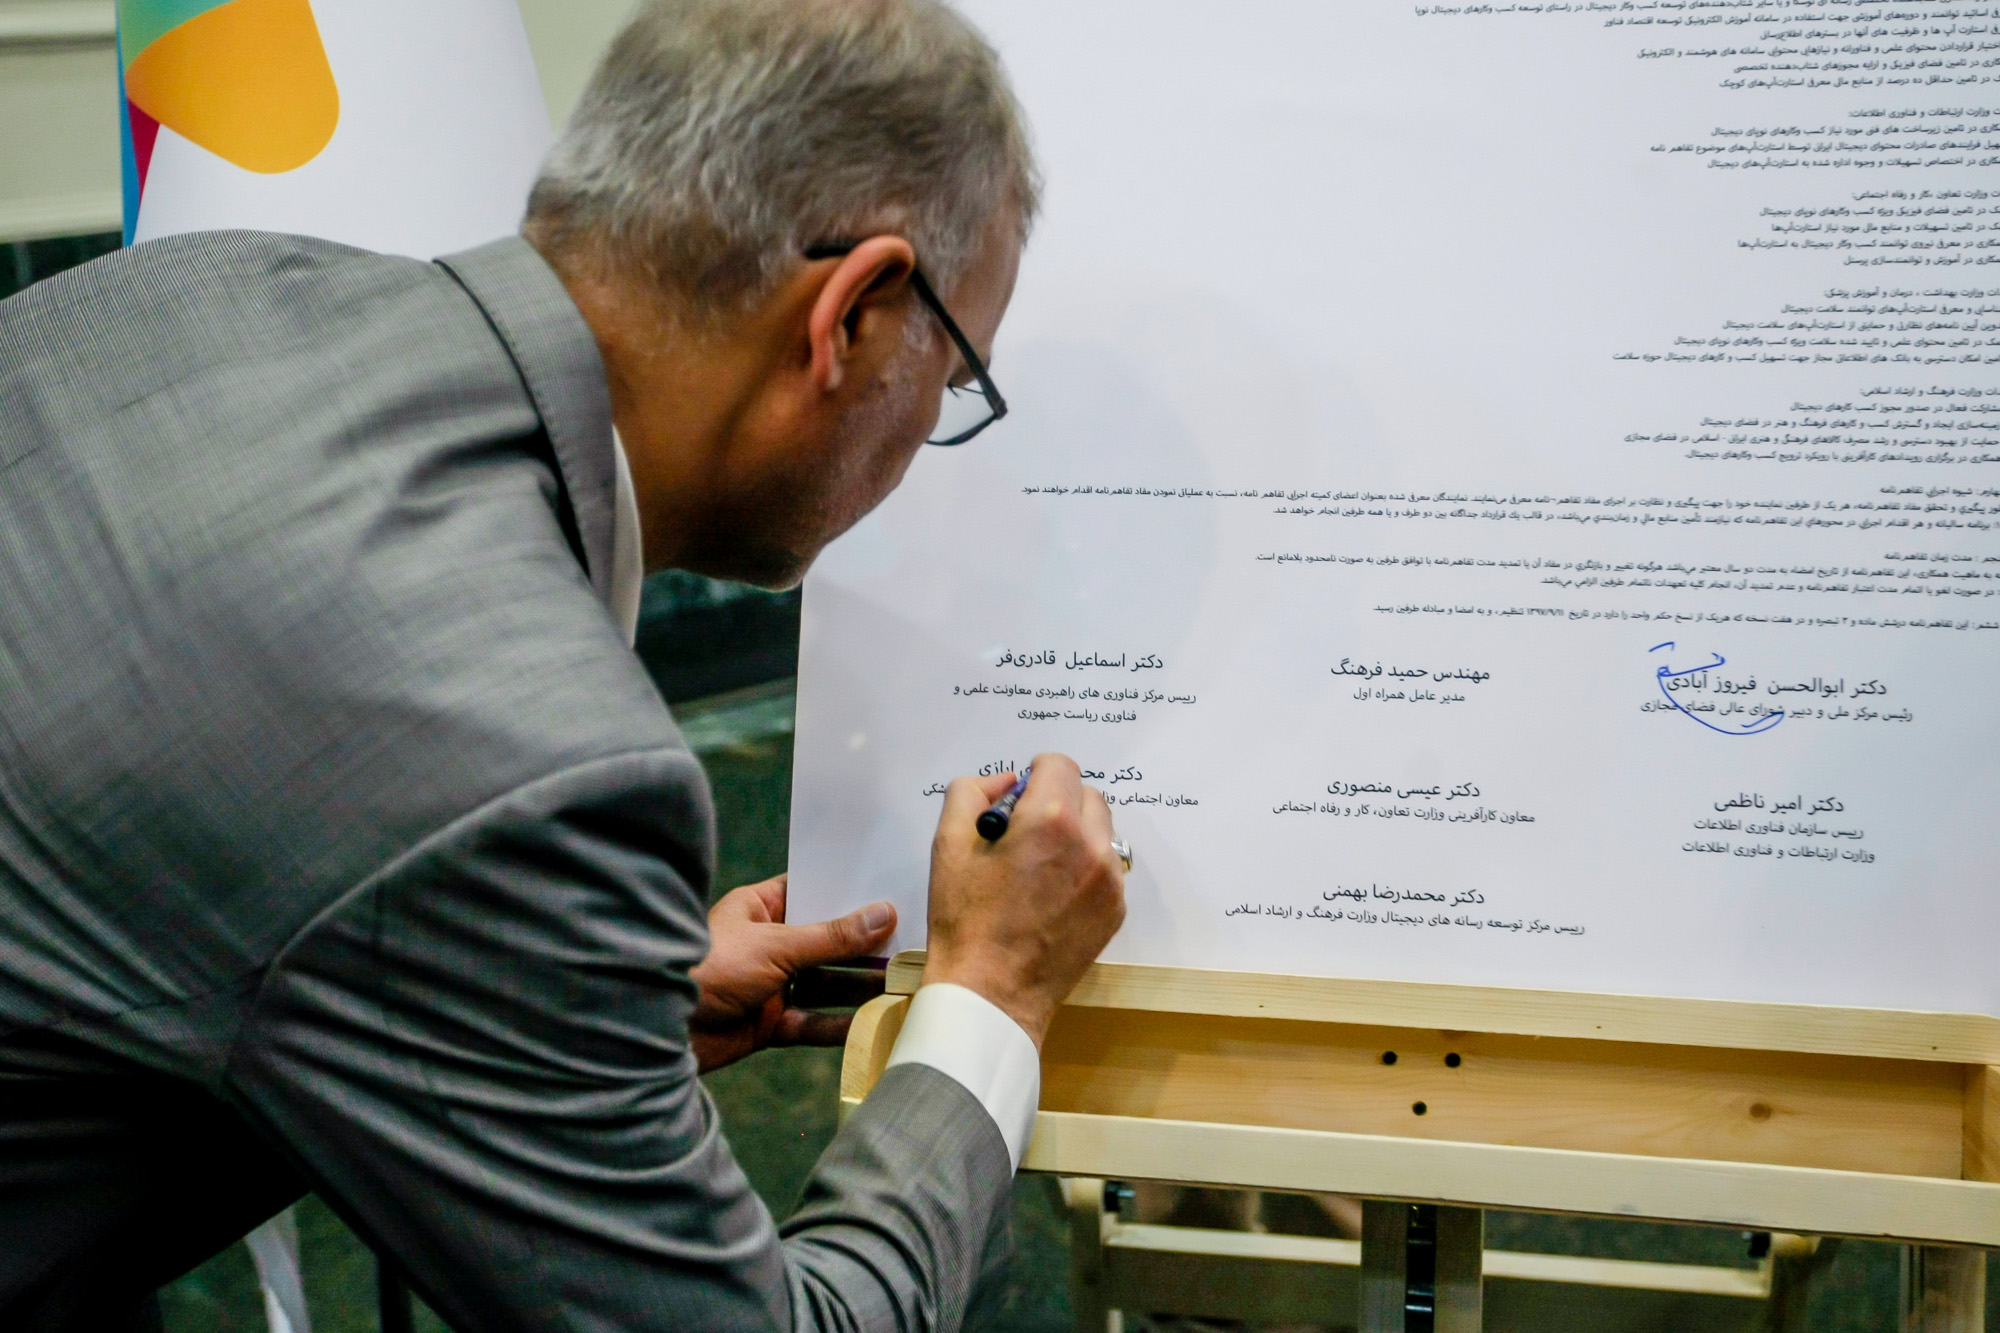 توسعه کسب وکار دیجیتال در راستای توسعه کسب وکارهای دیجیتال نوپا
اساتید توانمند و دوره‌های آموزشی جهت استفاده در سامانه آموزش الکترونیکی توسعه اقتصاد فناور
استارت آپ ها و ظرفیت های آنها در بسترهای اطلاع‌رسانی
قراردادن محتوای علمی و فناورانه و نیازهایی محتوایی سامانه های هوشمند و الکترونیکی
در تامین فضای فیزیکی و ارایه مجوزهای شتاب‌دهنده تخصصی
در تامین حداقل ده درصد از منابع مالی معرفی استارت‌آپ‌های کوچک
وزارت ارتباطات و فناوری اطلاعات:
در تامین زیرساخت های فنی مورد نیاز کسب وکارهای نوپای دیجیتال
فرایندهای صادرات محتوای دیجیتال ایرانی توسط استارت‌آپ‌های موضوع تفاهم نامه
در اختصاص تسهیلات و وجوه اداره شده به استارت‌آپ‌های دیجیتال
وزارت تعاون ،کار و رفاه اجتماعی:
در تامین فضای فیزیکی ویژه کسب وکارهای نوپای دیجیتال
در تامین تسهیلات و منابع مالی مورد نیاز استارت‌آپ‌ها
در معرفی نیروی توانمند کسب وکار دیجیتال به استارت‌آپ‌ها
در آموزش و توانمندسازی پرسنل
وزارت بهداشت ، درمان و آموزش پزشکی:
و معرفی استارت‌آپ‌های توانمند سلامت دیجیتال
آیین نامه‌های نظارتی و حمایتی از استارت‌آپ‌های سلامت دیجیتال
در تامین محتوای علمی و تایید شده سلامت ویژه کسب وکارهای نوپای دیجیتال
امکان دسترسی به بانک های اطلاعاتی مجاز جهت تسهیل کسب و کارهای دیجیتال حوزه سلامت
وزارت فرهنگ و ارشاد اسلامی:
مشارکت فعال در صدور مجوز کسب کارهای دیجیتال
زمینه‌سازی ایجاد و گسترش کسب و کارهای فرهنگ و هنر در فضای دیجیتال
حمایت از بهبود دسترسی و رشد مصرف کالاهای فرهنگی و هنری ایرانی - اسلامی در فضای مجازی
همکاری در برگزاری رویدادهای کارآفرینی با رویکرد ترویج کسب وکارهای دیجیتال.
شیوه اجرایی تفاهم‌نامه
پیگیری و تحقق مفاد تفاهم‌نامه، هر یک از طرفین نماینده خود را جهت پیگیری و نظارت بر اجرای مفاد تفاهم-نامه معرفی می‌نمایند. نمایندگان معرفی شده بعنوان اعضای کمیته اجرایی تفاهم نامه، نسبت به عملیاتی نمودن مفاد تفاهم‌نامه اقدام خواهند نمود.
برنامه سالیانه و هر اقدام اجرایی در محورهای این تفاهم‌نامه که نیازمند تأمین منابع مالی و زمان‌بندی می‌باشد، در قالب یک قرارداد جداگانه بین دو طرف و یا همه طرفین انجام خواهد شد.
مدت زمان تفاهم‌نامه
به ماهیت همکاری، این تفاهم‌نامه از تاریخ امضاء به مدت دو سال معتبر می‌باشد هرگونه تغییر و بازنگری در مفاد آن یا تمدید مدت تفاهم‌نامه با توافق طرفین به صورت نامحدود بلامانع است.
در صورت لغو یا اتمام مدت اعتبار تفاهم‌نامه و عدم تمدید آن، انجام کلیه تعهدات ناتمام طرفین الزامی می‌باشد.
ششم: این تفاهم‌نامه درشش ماده و ۲ تبصره و در هفت نسخه که هریک از نسخ حکم واحد را دارد در تاریخ ۱۳۹۷/۹/۱۱ تنظیم، و به امضا و مبادله طرفین رسید.
دکتر ابوالحسن فیروز آبادی
رئیس مرکز ملی و دبیر شورای عالی فضای مجازی
مهندس حمید فرهنگ
مدیر عامل همراه اول
دکتر اسماعیل قادری‌فر
رییس مرکز فناوری های راهبردی معاونت علمی و
فناوری ریاست جمهوری
دکتر امیر ناظمی
رییس سازمان فناوری اطلاعات
وزارت ارتباطات و فناوری اطلاعات
دکتر عیسی منصوری
معاون کارآفرینی وزارت تعاون، کار و رفاه اجتماعی
دکتر ایازی
معاون اجتماعی
دکتر محمدرضا بهمنی
رییس مرکز توسعه رسانه های دیجیتال وزارت فرهنگ و ارشاد اسلامی